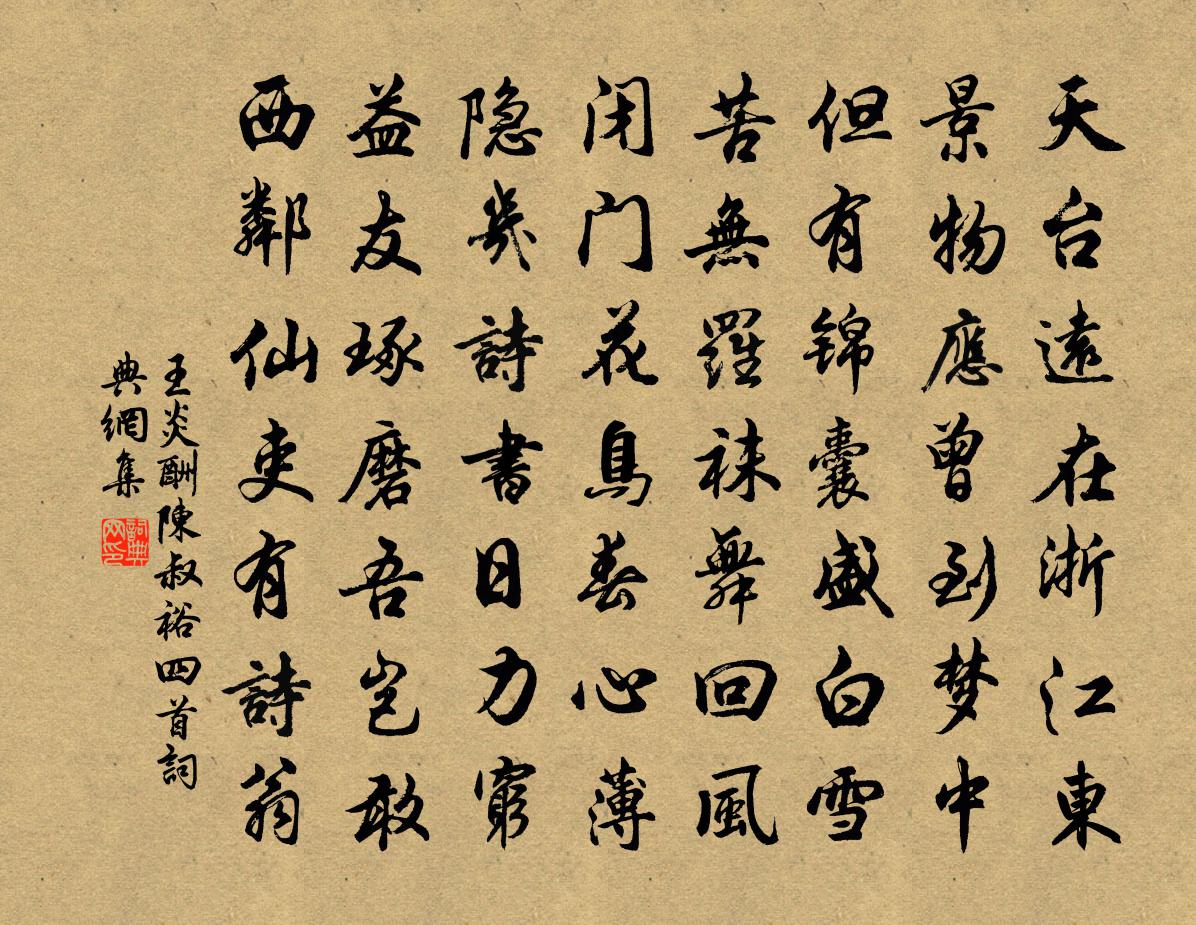 天台遠在浙江東
景物應曾到梦中
但有锦囊盛白雪
苦無羅袜舞回風
闭门花鳥春心薄
隐几詩書日力窮
益友琢磨吾岂敢
西鄰仙吏有詩翁
王炎酬陳叔裕四首詞
典網集
詞典
网印